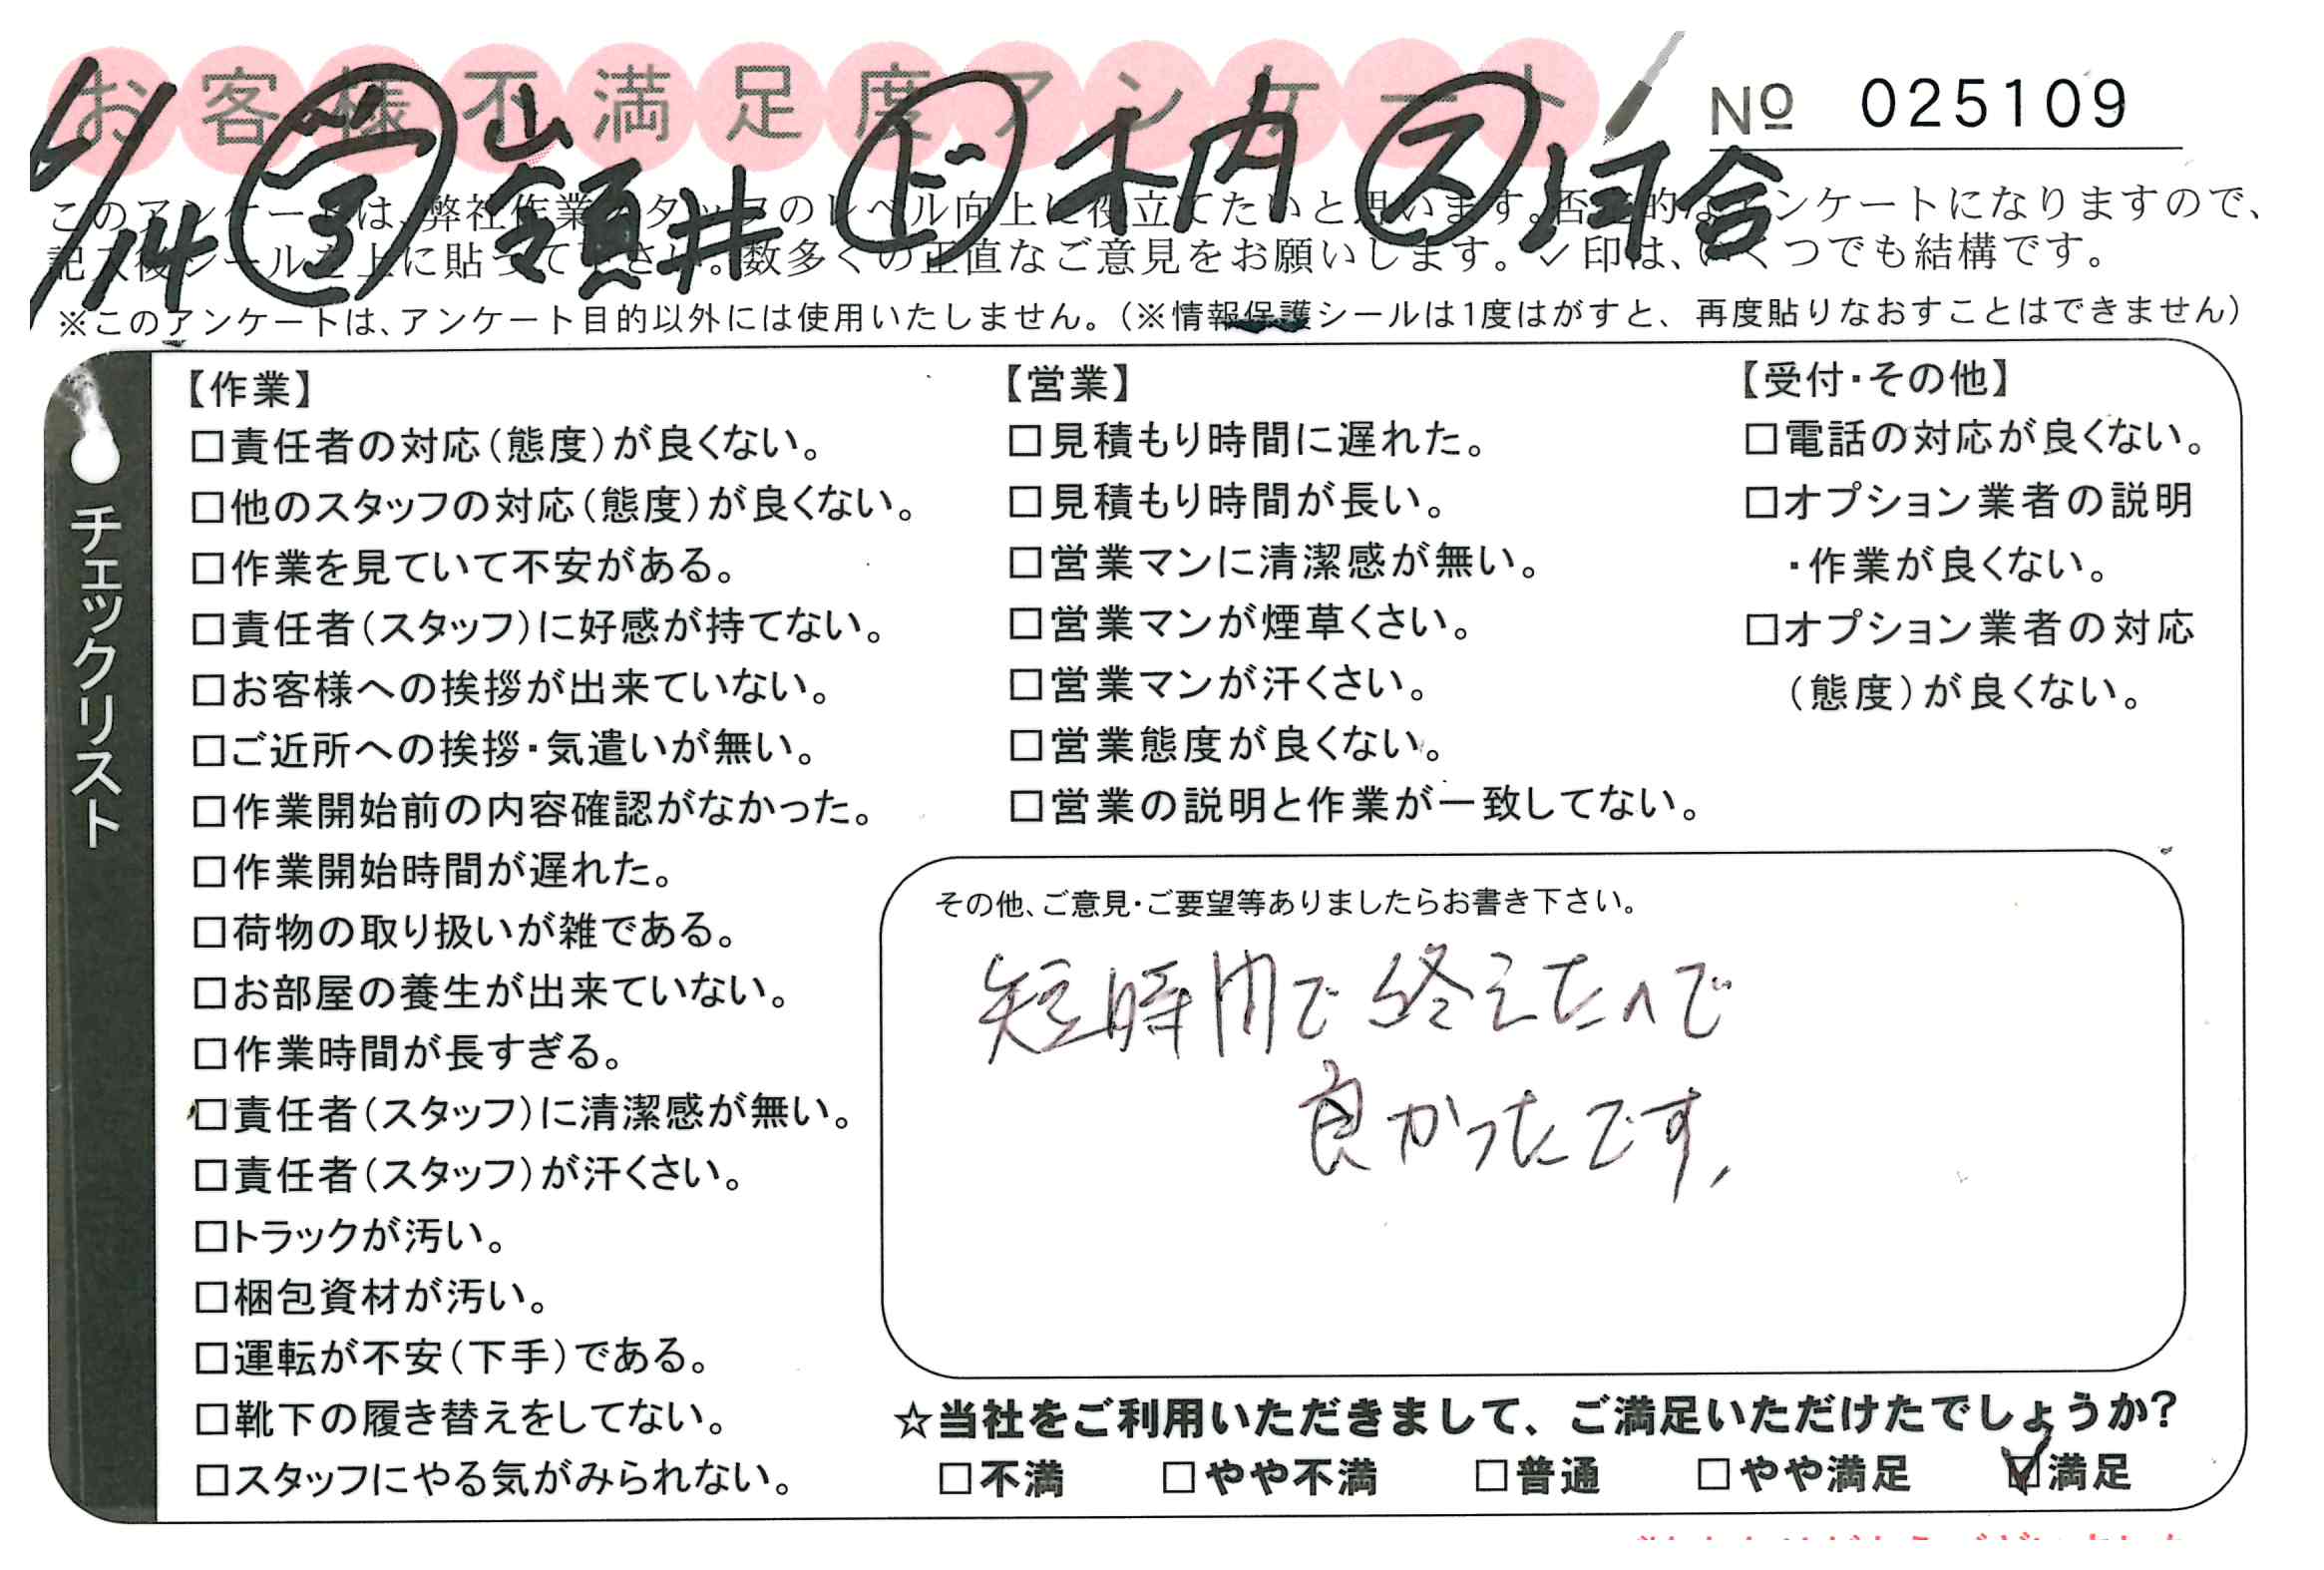 お客様不満足度アンケート
№ 025109
6/14 ㊂ 山 額井 ㊤ 木内 ㋜ 河合
このアンケートは、弊社作業スタッフのレベル向上に役立てたいと思います。否定的なアンケートになりますので、
記入後シールを上に貼って下さい。数多くの正直なご意見をお願いします。✓印は、いくつでも結構です。
※このアンケートは、アンケート目的以外には使用いたしません。（※情報保護シールは1度はがすと、再度貼りなおすことはできません）
チェックリスト
【作業】
□責任者の対応（態度）が良くない。
□他のスタッフの対応（態度）が良くない。
□作業を見ていて不安がある。
□責任者（スタッフ）に好感が持てない。
□お客様への挨拶が出来ていない。
□ご近所への挨拶・気遣いが無い。
□作業開始前の内容確認がなかった。
□作業開始時間が遅れた。
□荷物の取り扱いが雑である。
□お部屋の養生が出来ていない。
□作業時間が長すぎる。
□責任者（スタッフ）に清潔感が無い。
□責任者（スタッフ）が汗くさい。
□トラックが汚い。
□梱包資材が汚い。
□運転が不安（下手）である。
□靴下の履き替えをしてない。
□スタッフにやる気がみられない。
【営業】
□見積もり時間に遅れた。
□見積もり時間が長い。
□営業マンに清潔感が無い。
□営業マンが煙草くさい。
□営業マンが汗くさい。
□営業態度が良くない。
□営業の説明と作業が一致してない。
【受付・その他】
□電話の対応が良くない。
□オプション業者の説明
・作業が良くない。
□オプション業者の対応
（態度）が良くない。
その他、ご意見・ご要望等ありましたらお書き下さい。
短時間で終えたので
良かったです。
☆当社をご利用いただきまして、ご満足いただけたでしょうか?
□不満 □やや不満 □普通 □やや満足 ☑満足